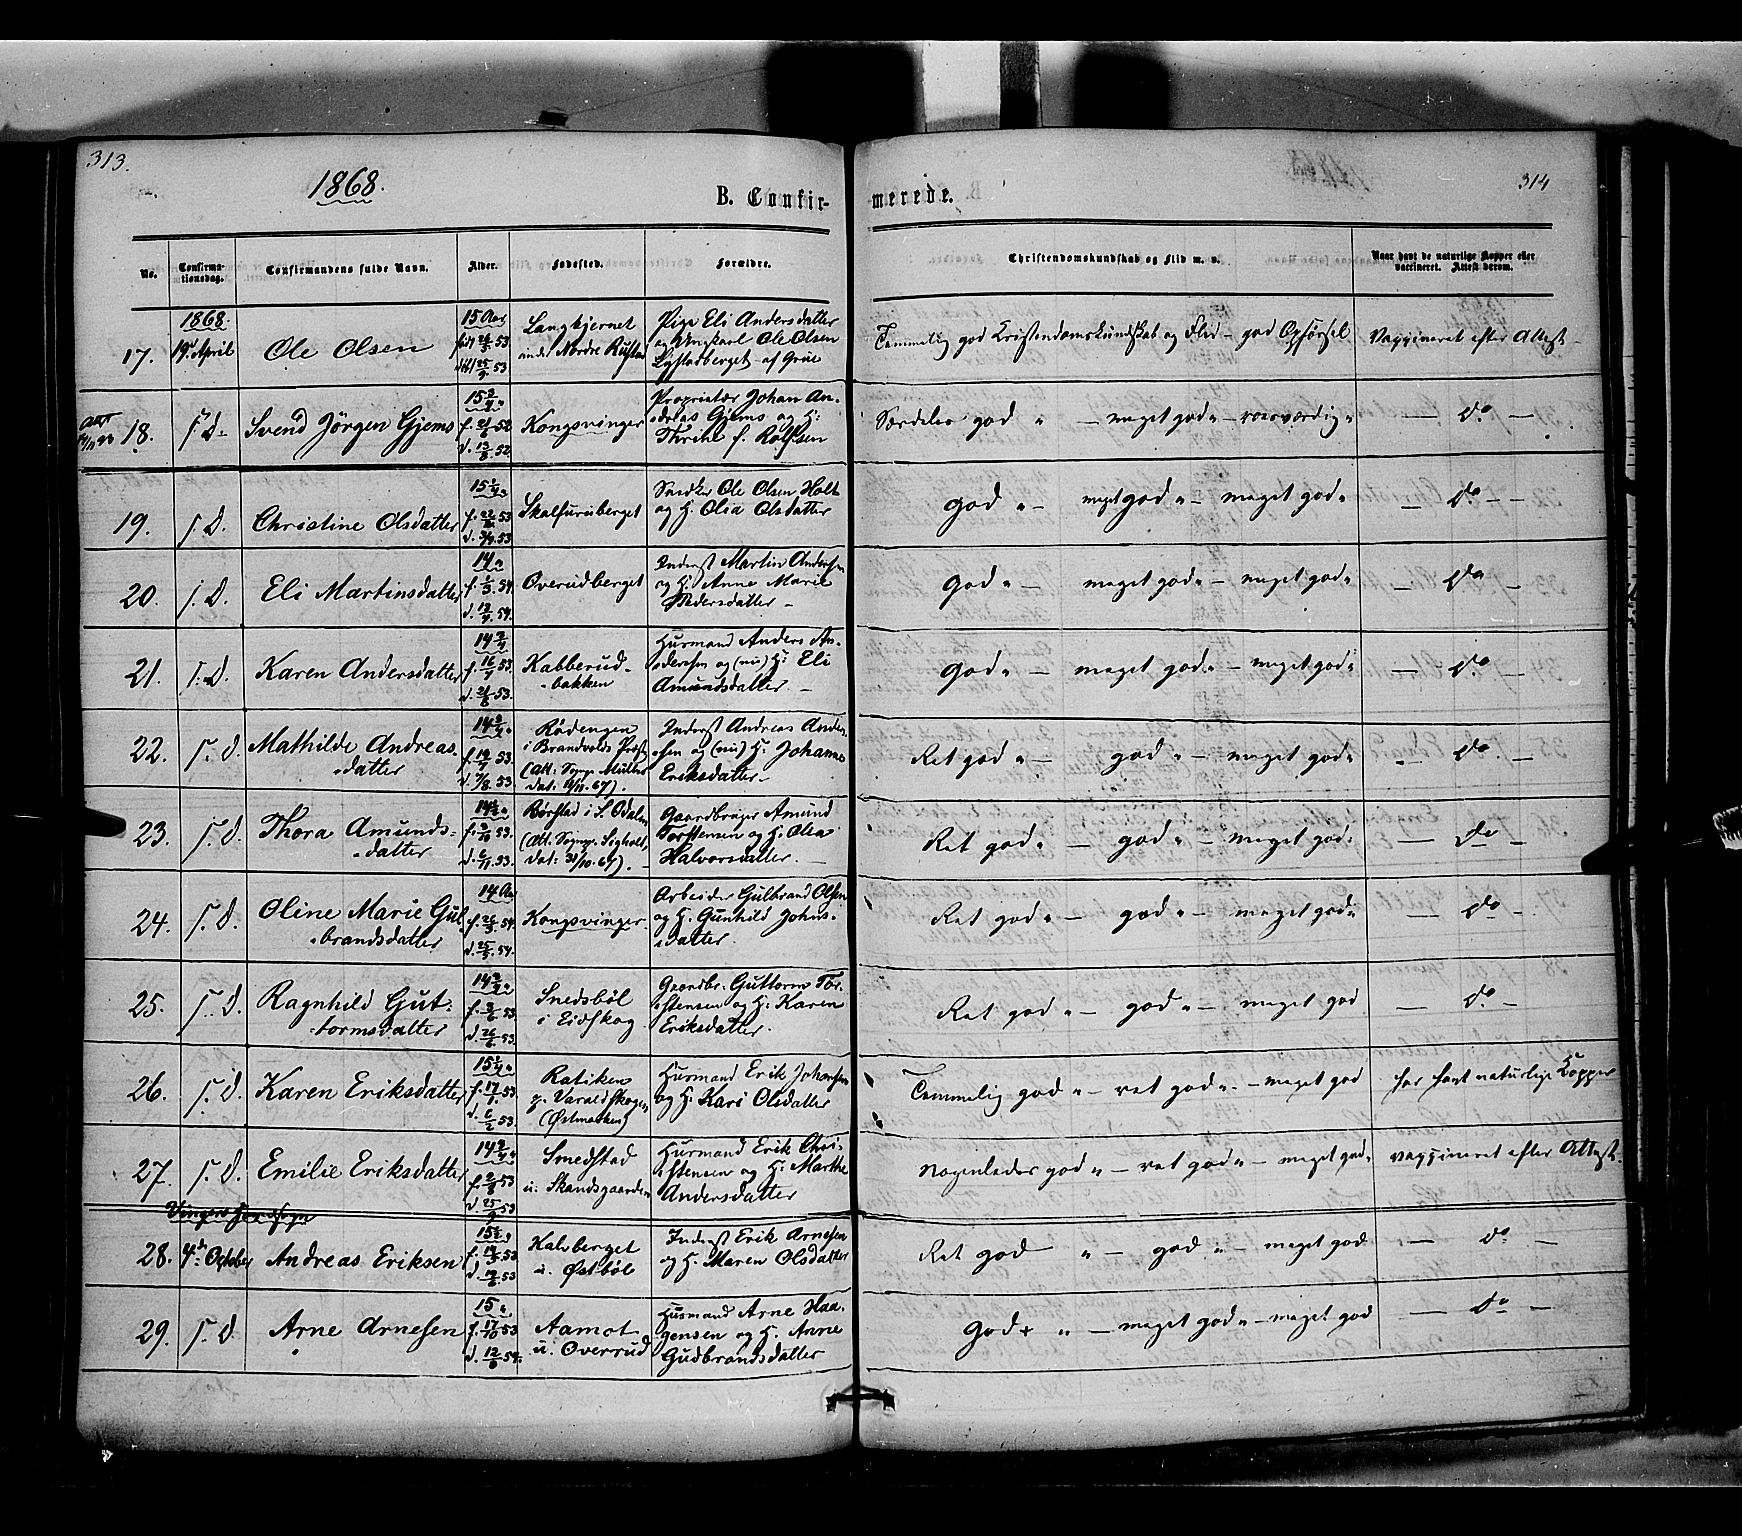 313.
1868.
B. Confir-
merede.
314
No.
Confirma-
tionsdag.
Confirmandens fulde Navn.
Alder.
Fødested.
Forældre.
Christendomskundskab og Flid m. v.
Naar havt de naturlige Kopper eller
vaccineret. Attest derom.
1868.
17. 19de April Ole Olsen
15 Aar
53
53
Langkjernet
Nordre
Pige Eli Andersdatter
og Ungkarl Ole Olsen
af Grue
Temmelig god Kristendomskundskab og Flid – god Opførsel
Vaccineret efter Attest
18. S. D. Svend Jörgen Gjems
15 3/4 "
f. 21/6 52
d. 13/8 52
Kongsvinger
Proprietær Johan An-
dreas Gjems og H:
f. Rolfsen
Særdeles god " – meget god " – roesværdig "
— Do —
19. S. D. Christine Olsdatter
15 1/4 "
53
53
Skalfuruberget
Ole Olsen Holt
og H. Olia Olsdatter
god " – meget god " – meget god "
— Do –
20. S. D. Eli Martinsdatter
14 "
f. 1/3 54.
d. 17/4 54.
Overudberget
Inderst Martin Andersen
og H. Anne Marie
Pedersdatter –
god " – meget god " – meget god "
— Do
21. S. D. Karen Andersdatter
14 3/4
f. 16/7 53.
d. 21/8 53.
Kabberud-
bakken
Husmand Anders An-
dersen og (nu) H: Eli
Amundsdatter. –
god " – meget god " – meget god "
— Do –
22. S. D. Mathilde Andreas-
datter
14 3/4 "
f. 19/7 53.
d. 7/8 53
Rödengen
i Brandvolds Præst.
(Att: Sogp. Müller
dat: 67).
Inderst Andreas Ander-
sen og (nu) H. Johanne
Eriksdatter –
Ret god " – god " – meget god "
– Do –
23. S. D. Thora Amunds-
datter
14 1/2 "
f. 53.
d. 6/11 53.
Börstad i S. Odalen
(Att. Sognpr. Sigholt,
dat: 31/10. 67).
Gaardbruger Amund
Torstensen og H. Olea
Halvorsdatter. –
Ret god " – god " – meget god "
— Do –
24. S. D. Oline Marie Gul-
brandsdatter
14 Aar
f. 26/3 54.
d. 25/5 54.
Kongsvinger
Arbeider Gulbrand Olsen
og H. Gunhild Johns-
datter.
Ret god " – god " – meget god "
— Do –
25. S. D. Ragnhild Gut-
tormsdatter
14 3/4 "
f. 3/6 53
d. 26/6 53.
Snedsböl
i Eidskog
Gaardbr. Guttorm Tor-
stensen og H: Karen
Eriksdatter.
Ret god " – god " – meget god
— Do –
26. S. D. Karen Eriksdatter
15 1/4 "
f. 17/1 53.
d. 6/2 53
Ratiken
p. Varaldskogen
(Østmarken)
Husmand Erik Johansen
og H. Kari Olsdatter
Temmelig god " – ret god " – meget god
har havt naturlige Kopper
27. S. D. Emilie Eriksdatter
14 3/4 "
f. 2/8 53
d. 25/9 53
Smedstad
u. Skandsgaarden
Husmand Erik Chri-
stensen og H. Marthe
Andersdatter
Nogenledes god " – ret god " – meget god "
vaccineret efter Attest.
Vinger Hovedsogn
28. 4de October Andreas Eriksen
15 1/2 "
53
53
Kalvberget
u. Østböl
Inderst Erik Arnesen
og H. Maren Olsdatter
Ret god " – god " – meget god
— Do –
29. S. D. Arne Arnesen
15 "
f. 17/10 53
d. 12/3 54.
Aamot
u. Overrud
Husmand Arne Haa-
gensen og H. Anne
Gudbrandsdatter
god + " – meget god " – meget god
— Do —